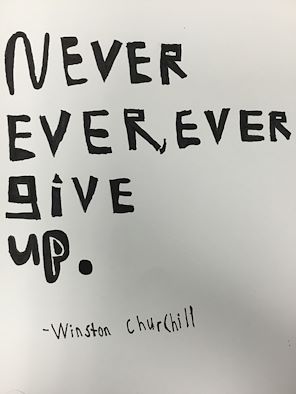 NEVER
EVER, EVER
giVE
up.
-Winston Churchill